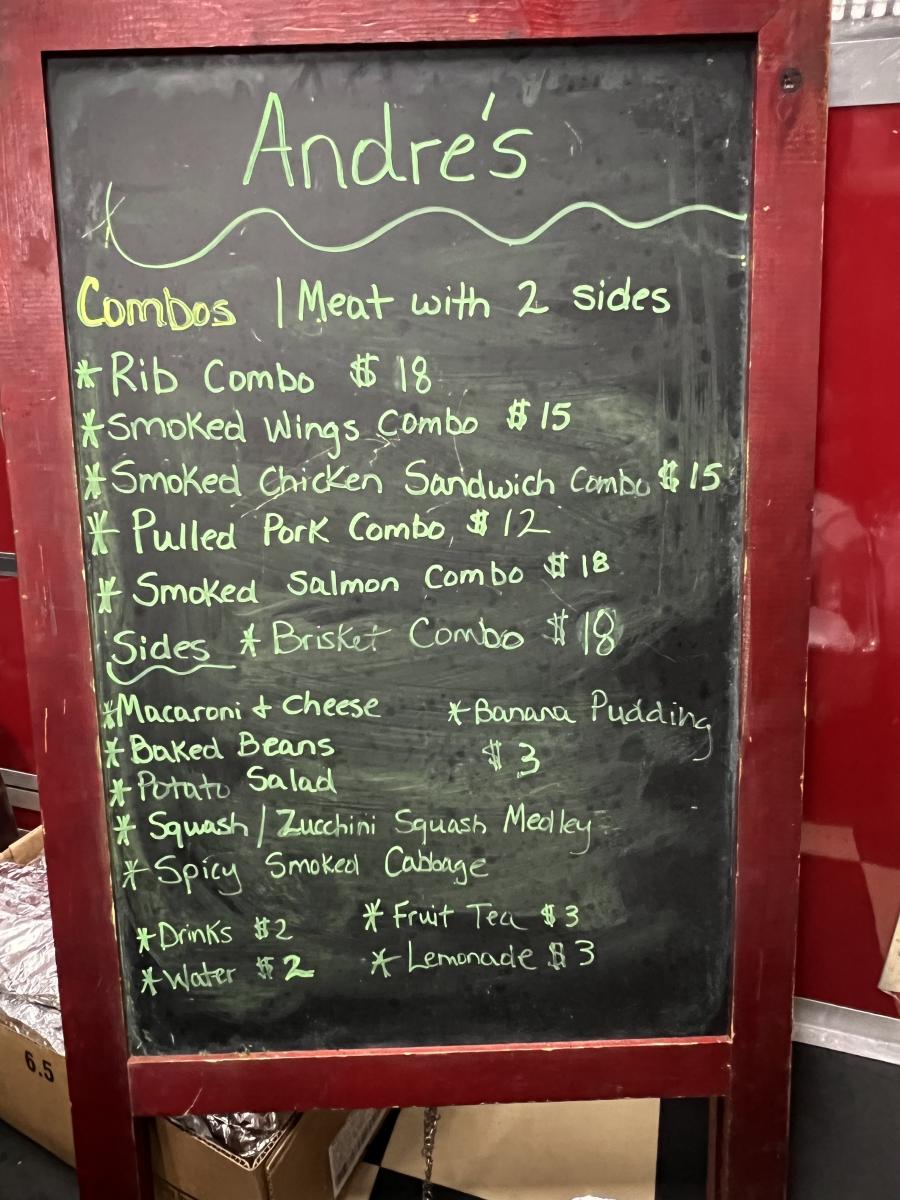 Andre's
Combos | Meat with 2 sides
* Rib Combo $18
* Smoked Wings Combo $15
* Smoked Chicken Sandwich Combo $15
* Pulled Pork Combo $12
* Smoked Salmon Combo $18
Sides * Brisket Combo $18
* Macaroni & Cheese * Banana Pudding
* Baked Beans $3
* Potato Salad
* Squash / Zucchini Squash Medley
* Spicy Smoked Cabbage
* Drinks $2 * Fruit Tea $3
* Water $2 * Lemonade $3
6.5